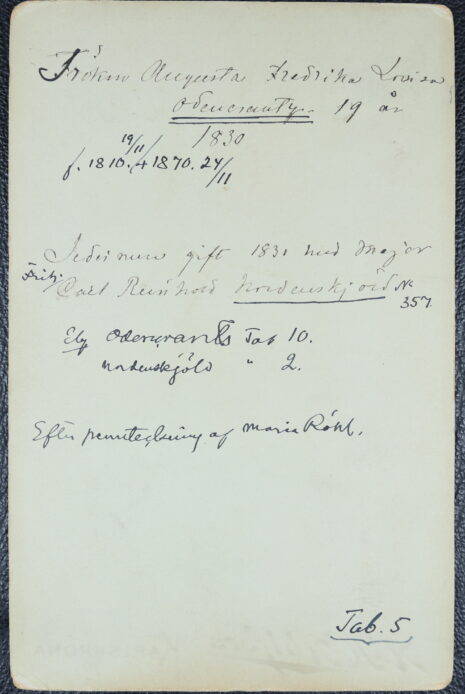 Fröken Augusta Fredrika Lovisa
Odencrantz. 19 år
1830
f. 1810. 19/11 † 1870. 24/11
Sedermera gift 1831 med Major
Frih. Carl Reinhold Nordenskjöld No
357.
Elg Odencrants Tab 10.
Nordenskjöld " 2.
Efter pennteckning af Maria Röhl.
Tab. 5
KARLSKRONA